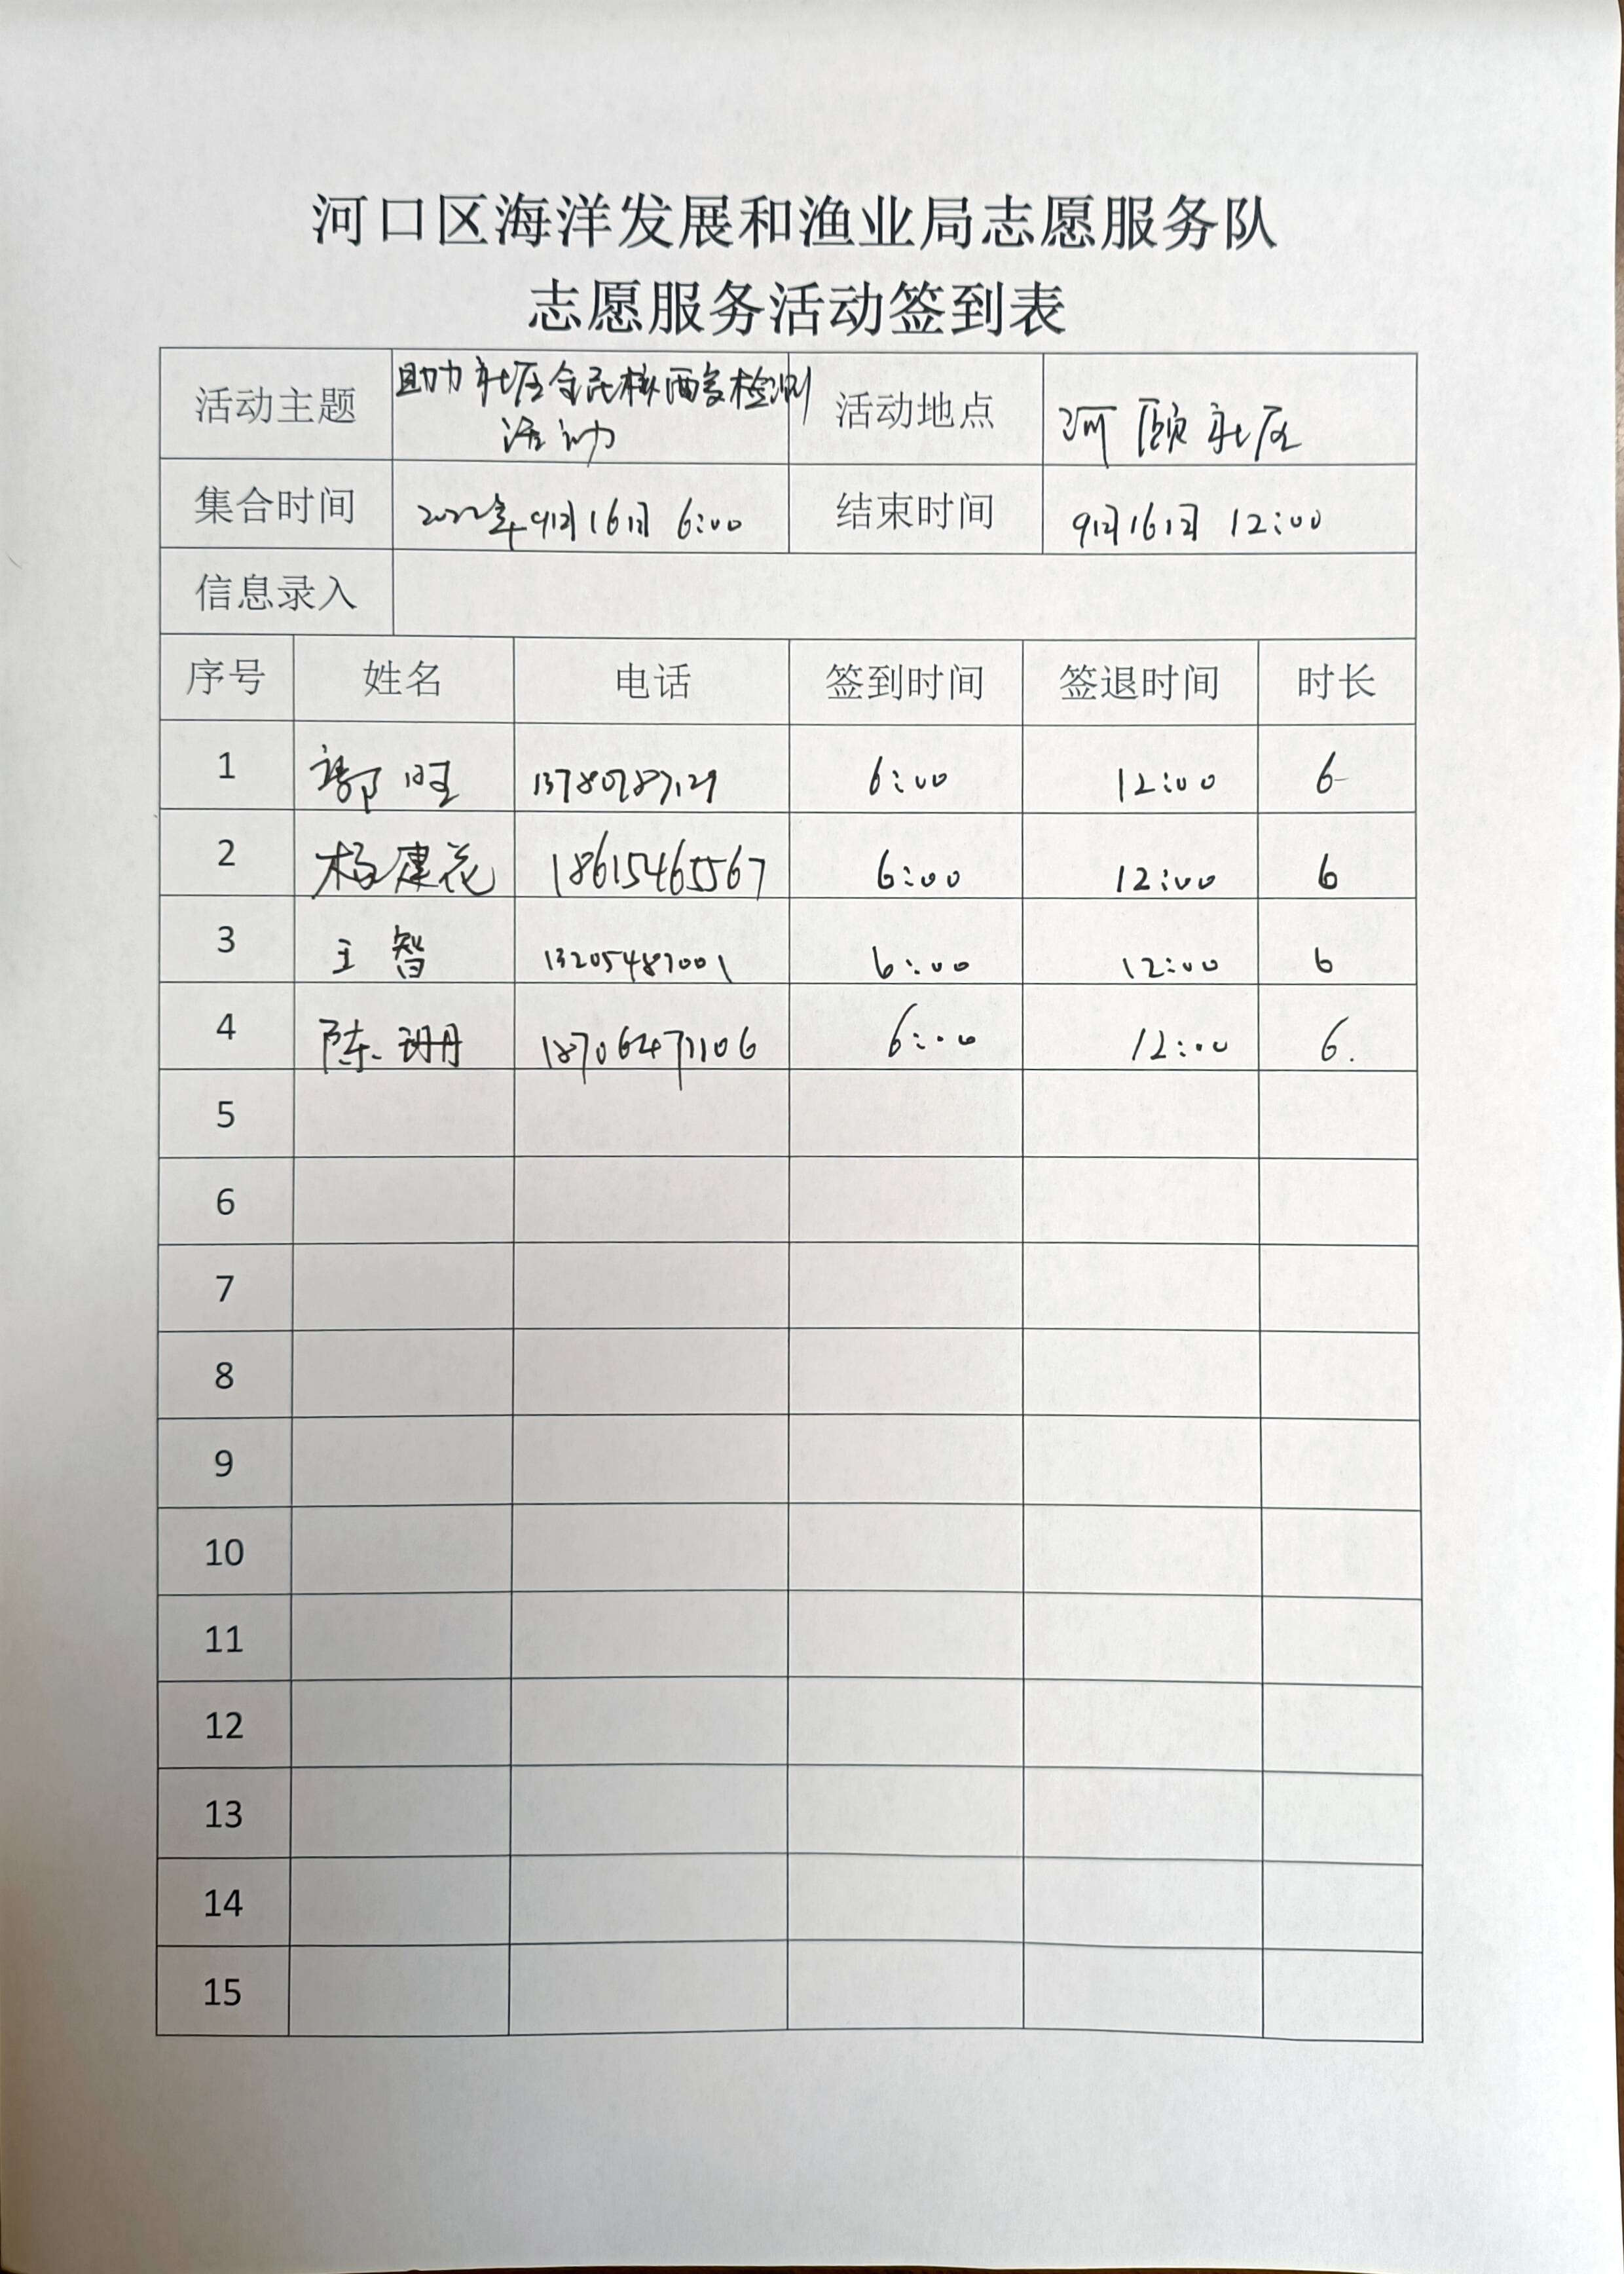 河口区海洋发展和渔业局志愿服务队
志愿服务活动签到表
活动主题 助力社区全民核酸检测 活动地点 河颐社区
活动
集合时间 2022年9月16日 6:00 结束时间 9月16日 12:00
信息录入
序号 姓名 电话 签到时间 签退时间 时长
1 旺 6:00 12:00 6
2 杨建花 18615465567 6:00 12:00 6
3 王智 13205487001 6:00 12:00 6
4 陈珊丹 18706471106 6:00 12:00 6.
5
6
7
8
9
10
11
12
13
14
15